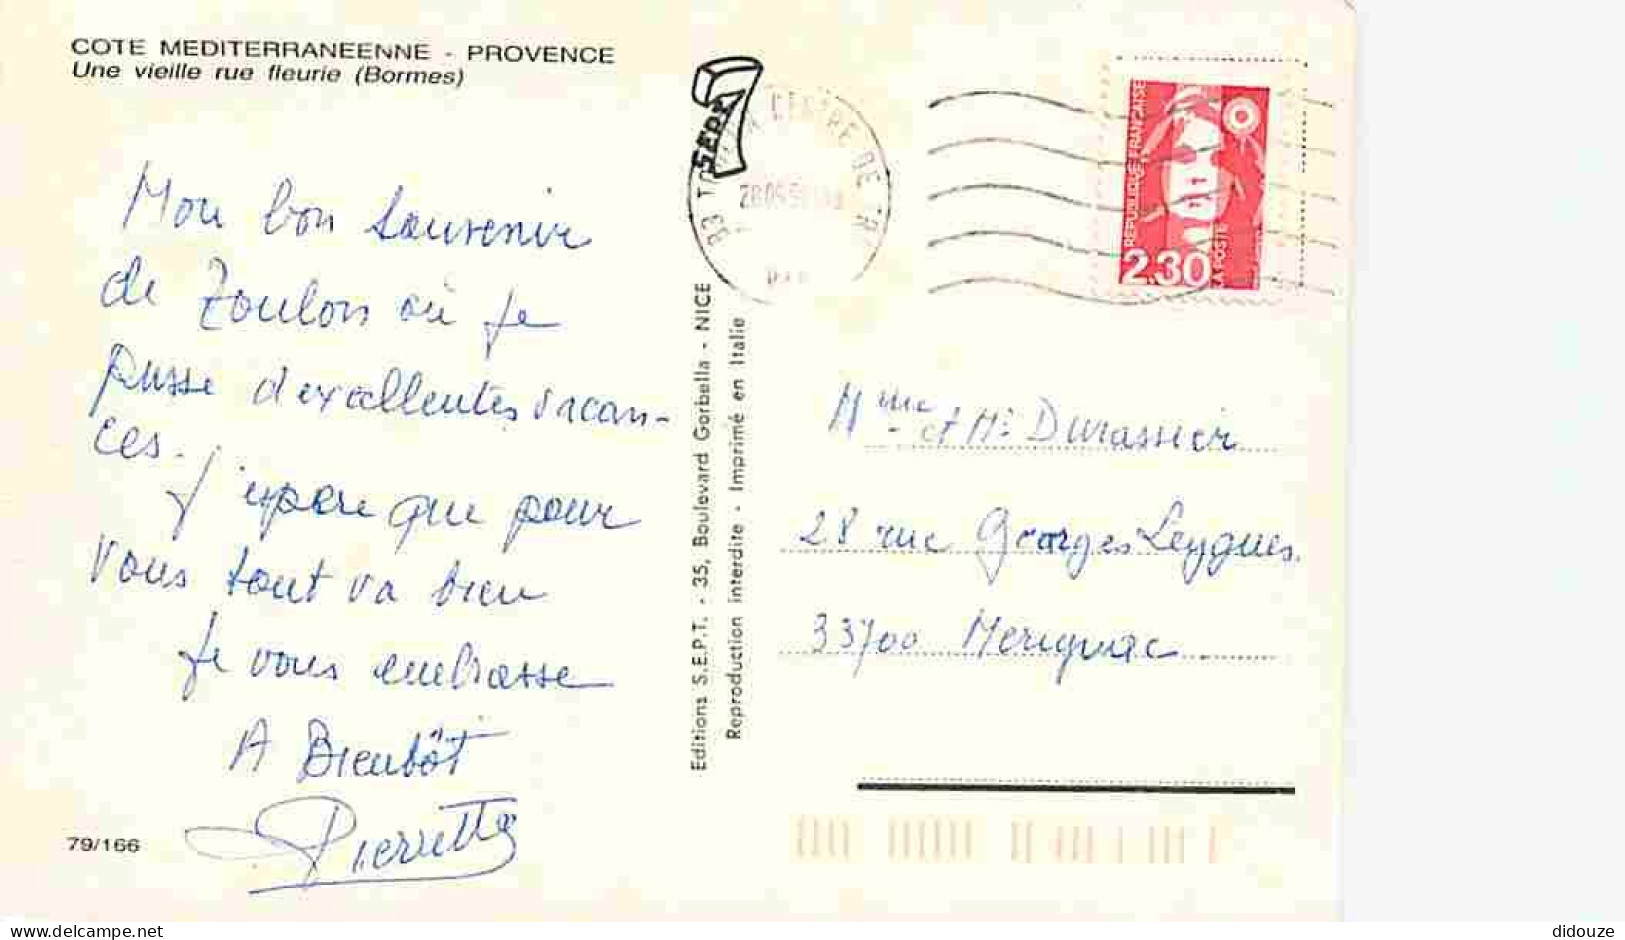 COTE MEDITERRANEENNE - PROVENCE
Une vieille rue fleurie (Bormes)
Mon bon souvenir
de Toulon où je
passe d'excellentes vacan-
ces. j'espère que pour
vous tout va bien
je vous embrasse
A Bientôt
Pierrette
79/166
SEPT
Editions S.E.P.T. - 35, Boulevard Gorbella - NICE
Reproduction interdite - Imprimé en Italie
83 CENTRE DE
REPUBLIQUE FRANÇAISE
2.30
LA POSTE
Mme et Mr Durassier
28 rue Georges Leygues.
33700 Merignac
delcampe.net
didouze